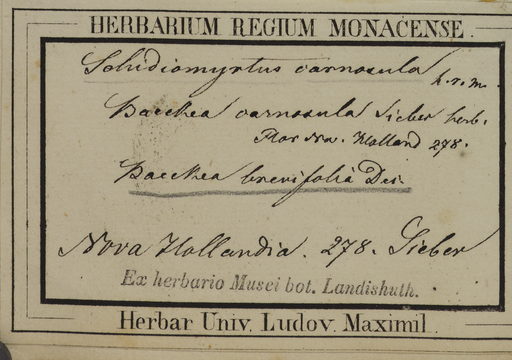 HERBARIUM REGIUM MONACENSE.
Schidiomyrtus carnosula
h. r. m.
Baeckea carnosula Sieber herb.
Flor Nov. Holland 278.
Baeckea brevifolia Dec.
Nova Hollandia. 278. Sieber
Ex herbario Musei bot. Landishuth.
Herbar Univ. Ludov. Maximil.